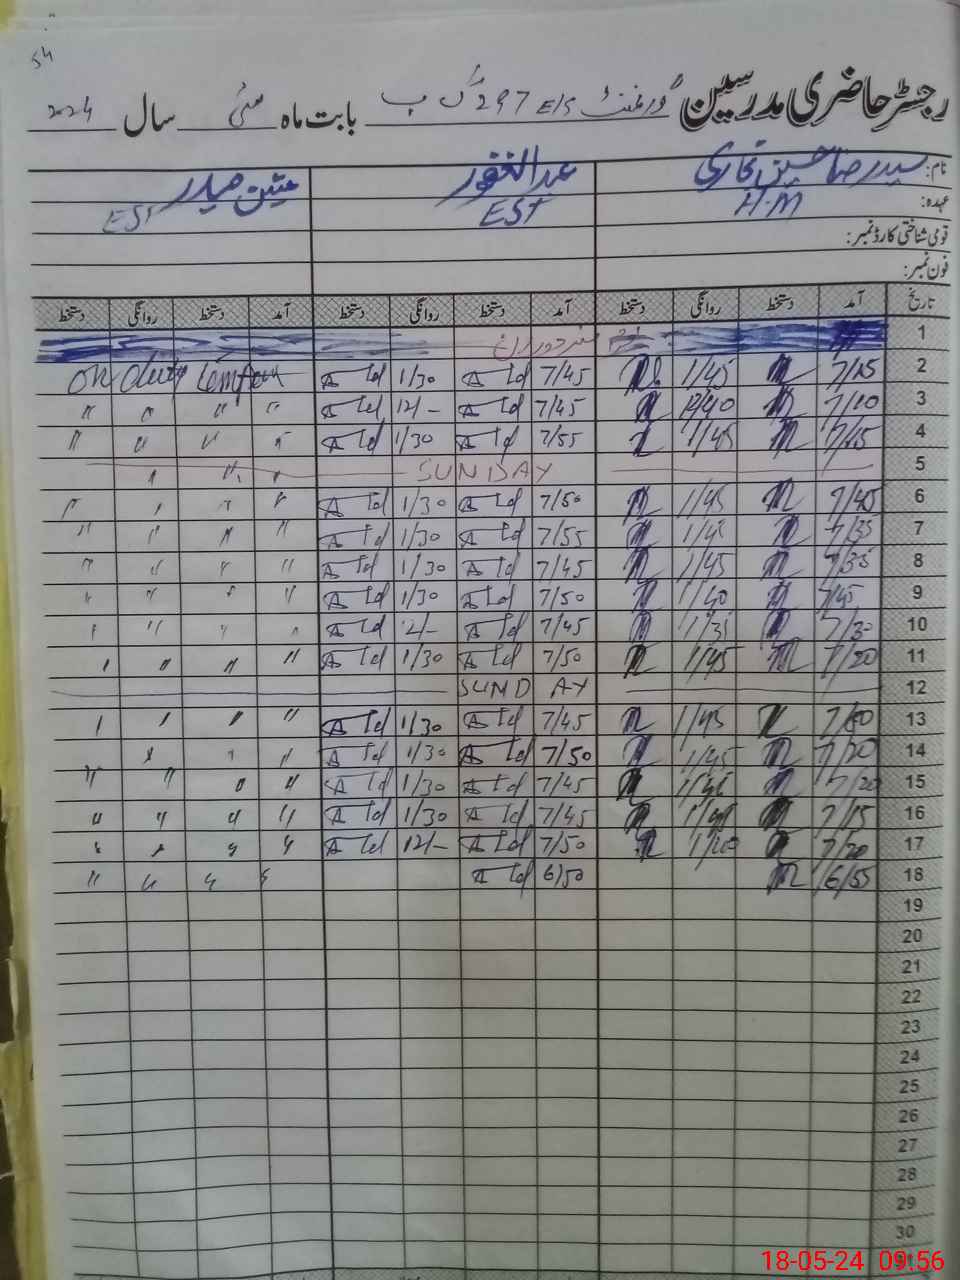 54
رجسٹر حاضری مدرسین گورنمنٹ E/S 297 گ ب بابت ماہ مئی سال 2024
نام: سید رضا حسین بخاری عبدالغفور متین حیدر
عہدہ: H.M EST EST
قومی شناختی کارڈ نمبر:
فون نمبر:
تاریخ آمد دستخط روانگی دستخط آمد دستخط روانگی دستخط آمد دستخط روانگی دستخط
1
2 7/15 1/45 7/45 1/30 on duty
3 7/10 12/40 7/45 12/- " " " "
4 7/15 1/45 7/55 1/30 " " " "
5 SUNDAY " " "
6 7/45 1/45 7/50 1/30 " " " "
7 7/35 7/55 1/30 " " " "
8 7/35 1/45 7/45 1/30 " " " "
9 7/45 1/40 7/50 1/30 " " " "
10 7/30 1/35 7/45 12/- " " " "
11 7/20 1/45 7/50 1/30 " " " "
12 SUNDAY
13 1/45 7/45 1/30 " " " "
14 7/20 1/45 7/50 1/30 " " "
15 7/20 1/45 7/45 1/30 " " " "
16 7/15 7/45 1/30 " " " "
17 7/20 1/40 7/50 12/- " " " "
18 6/55 6/50 " " " "
19
20
21
22
23
24
25
26
27
28
29
30
31
18-05-24 09:56